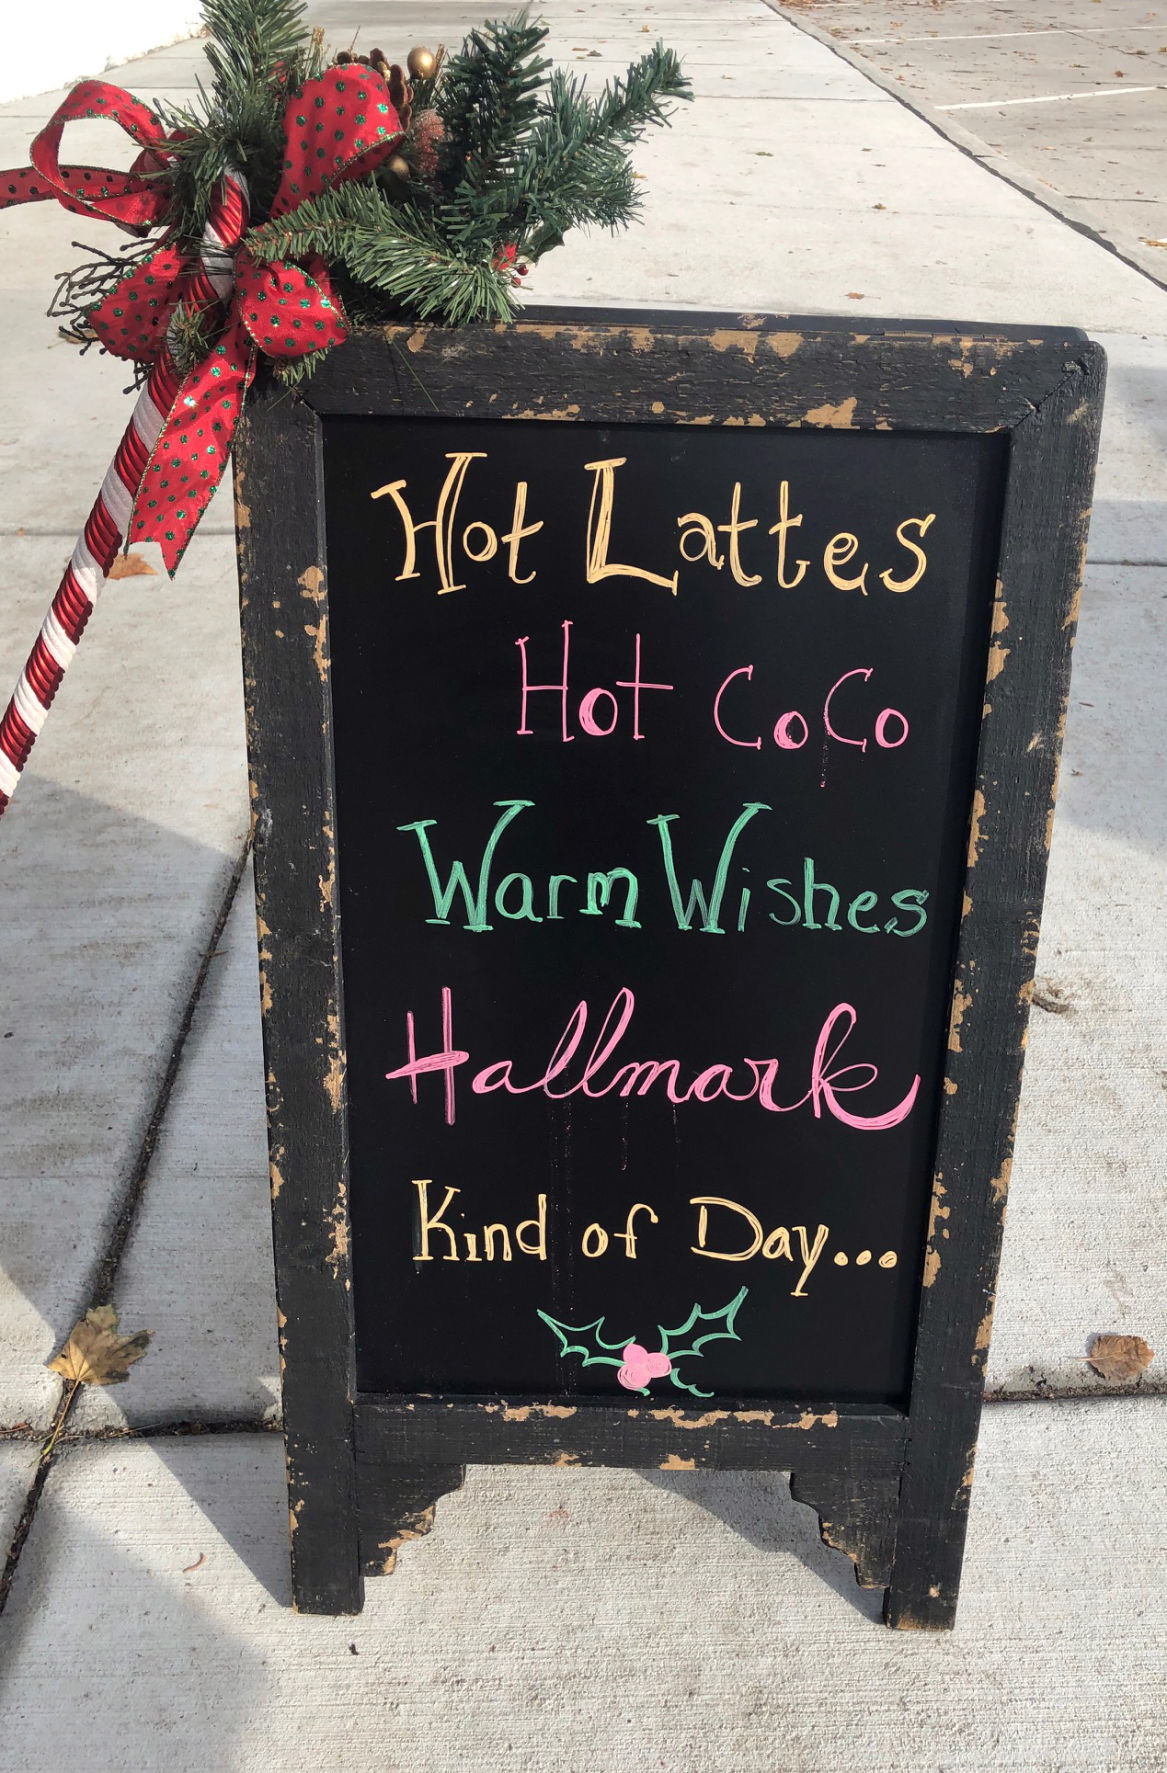 Hot Lattes
Hot CoCo
Warm Wishes
Hallmark
Kind of Day...